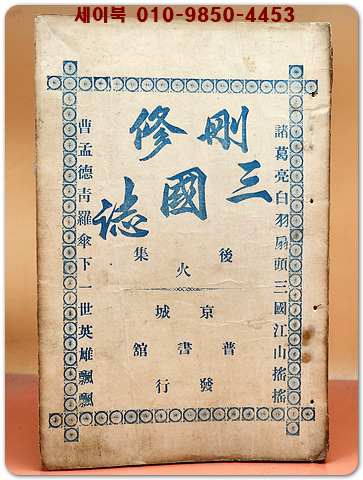 세이북 010-9850-4453
諸葛亮白羽扇頭三國江山搖搖
刪修
三國誌
後火集
京城
普書舘
發行
曹孟德靑羅傘下一世英雄飄飄